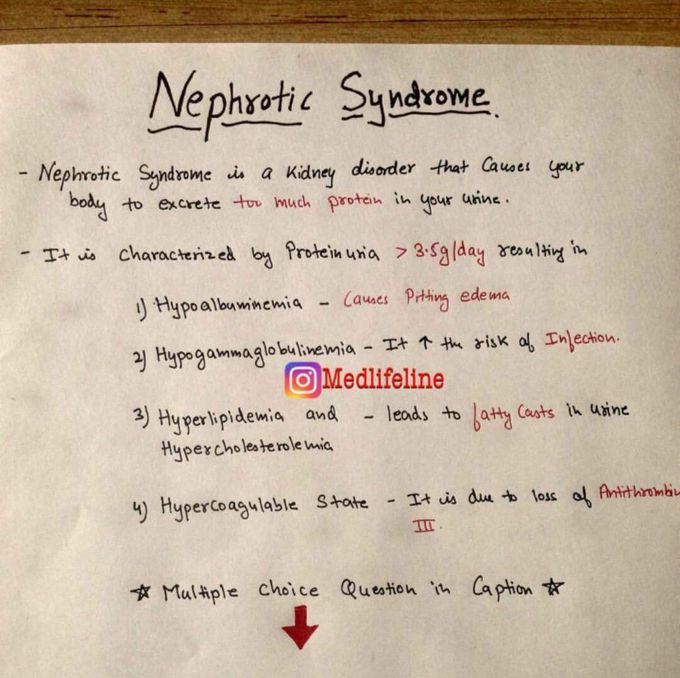 Nephrotic Syndrome.
- Nephrotic Syndrome is a Kidney disorder that Causes your
body to excrete too much protein in your urine.
- It is Characterized by Proteinuria > 3.5g/day resulting in
1) Hypoalbuminemia - Causes Pitting edema
2) Hypogammaglobulinemia - It ↑ the risk of Infection.
Medlifeline
3) Hyperlipidemia and - leads to fatty Casts in urine
Hypercholesterolemia
4) Hypercoagulable State - It is due to loss of Antithrombin
III.
☆ Multiple Choice Question in Caption ☆